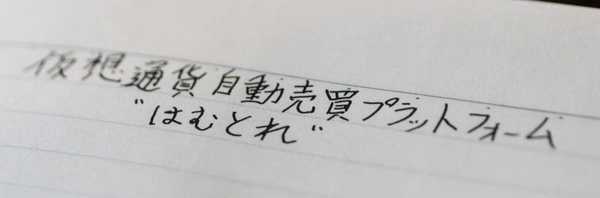 仮想通貨自動売買プラットフォーム
"はむとれ"